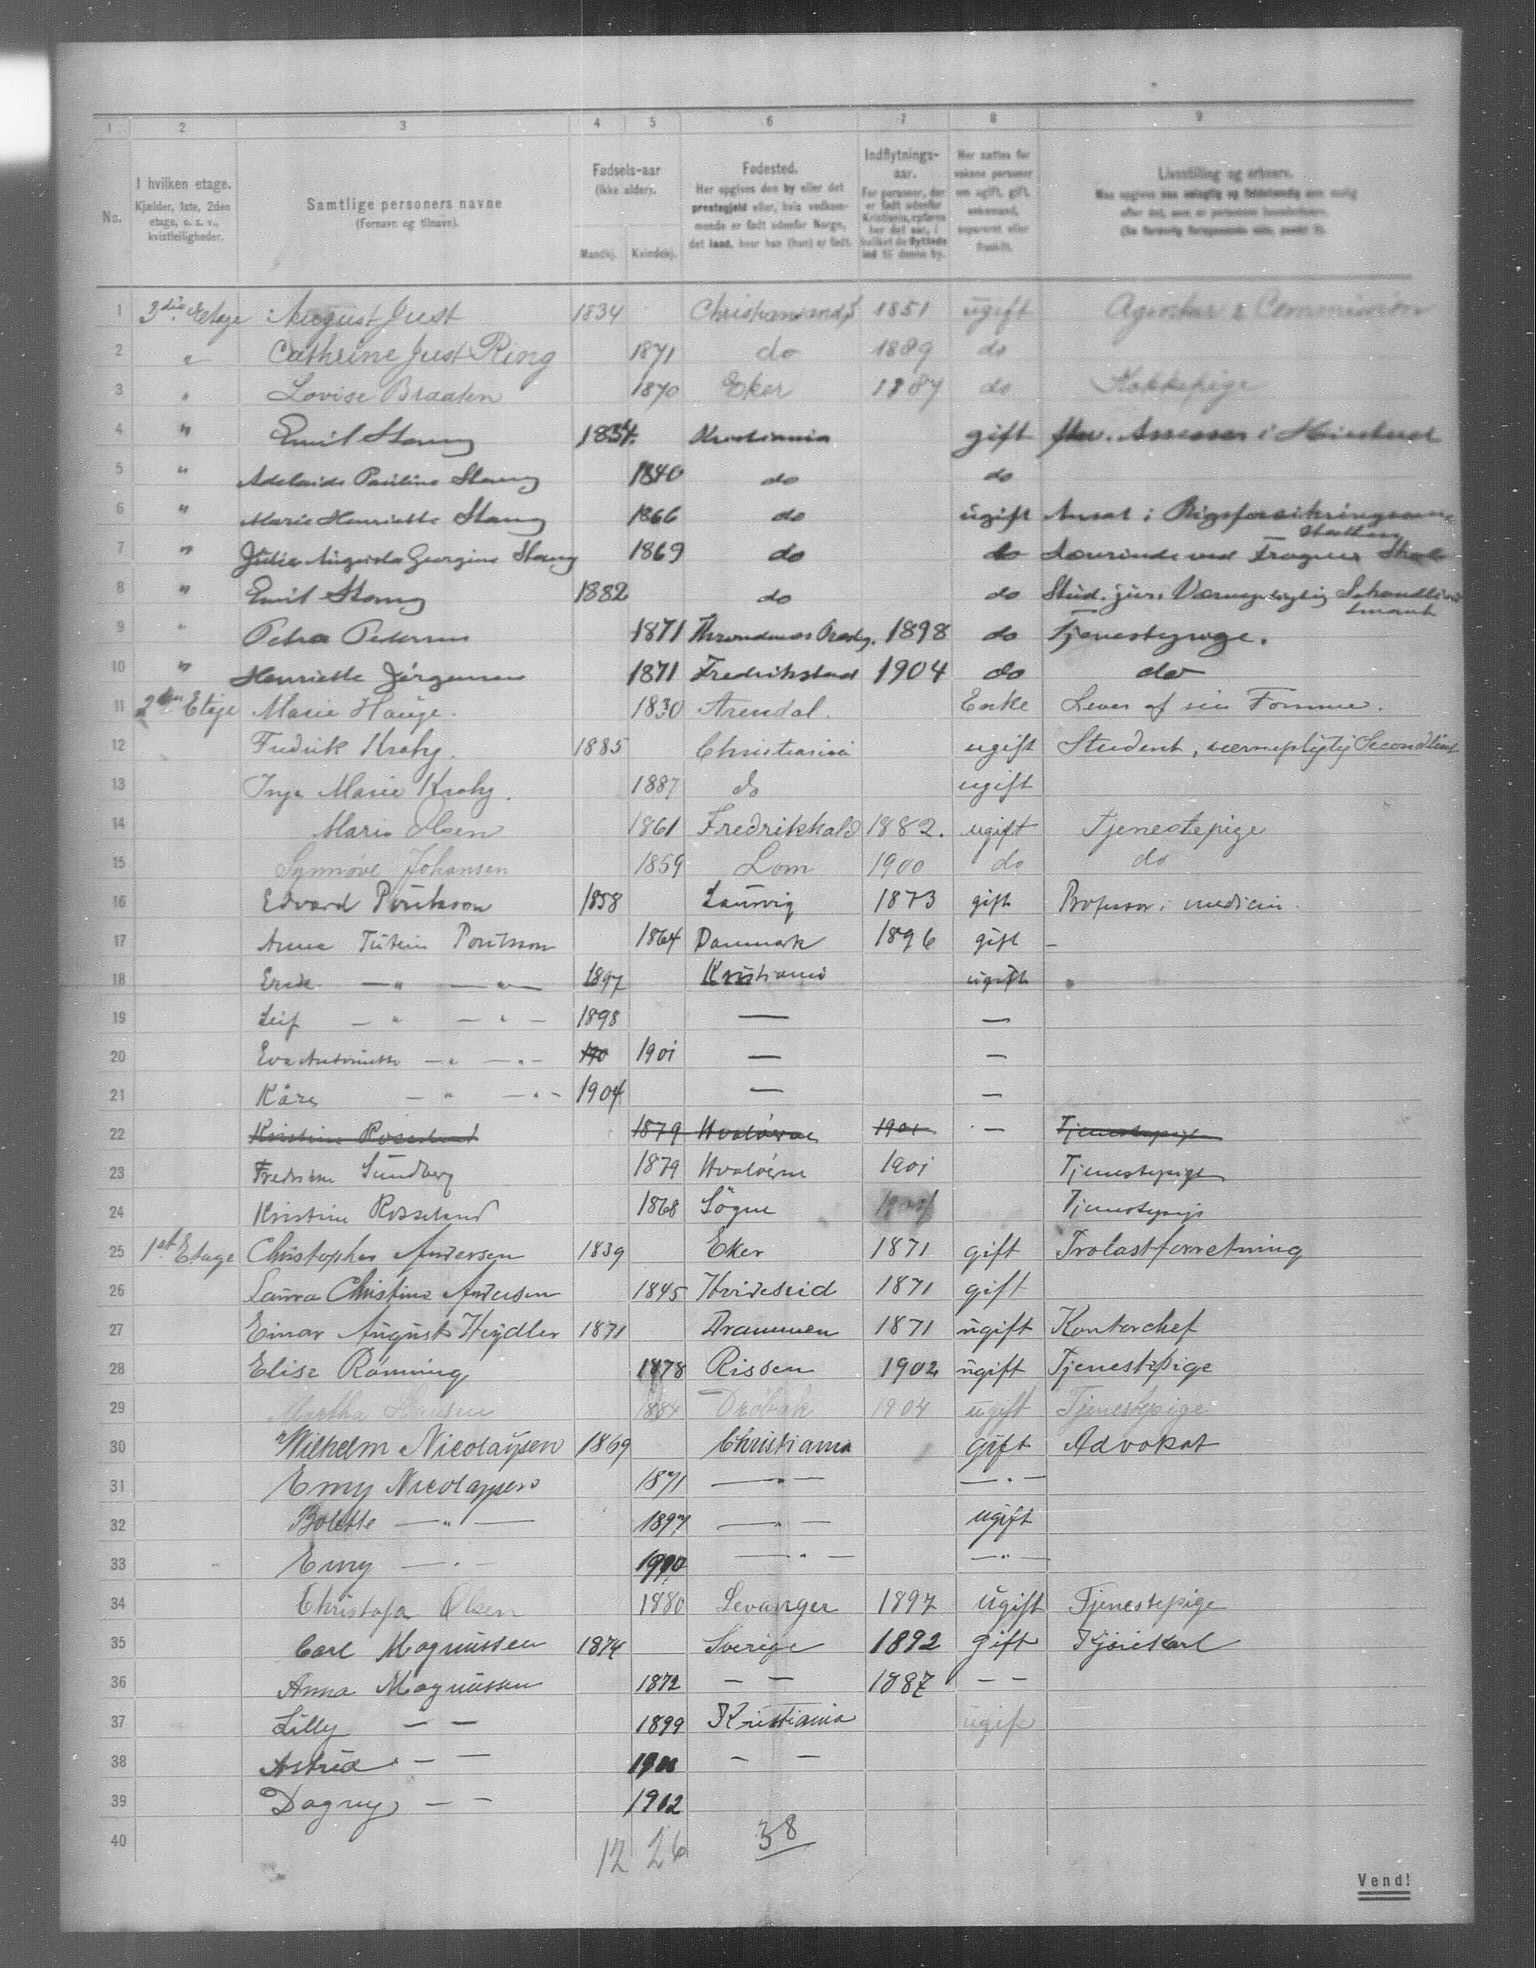 1 2 3 4 5 6 7 8 9
No. I hvilken etage. Kjælder, 1ste, 2den etage, o. s. v., kvistleiligheder. Samtlige personers navne (Fornavn og tilnavn). Fødsels-aar (ikke alder). Mandkj. Kvindekj. Fødested. Her opgives den by eller det prestegjeld eller, hvis vedkommende er født udenfor Norge, det land, hvor han (hun) er født. Indflytnings-aar. For personer, der er født udenfor Kristiania, opføres her det aar, i hvilket de flyttede ind til denne by. Her sættes for voksne personer om ugift, gift, enkemand, separeret eller fraskilt. Livsstilling og erhverv.
1 3die Etage August Just 1834 Christianssund 1851 ugift Agentur & Commission
2 " Cathrine Just Ring 1871 do 1889 do
3 " Lovise Braaten 1870 Eker 1887 do Kokkepige
4 " Emil Stang 1834. Kristiania gift fhv. Assessor i Høiesteret
5 " Adelaide Pauline Stang 1840 do do
6 " Marie Henriette Stang 1866 do ugift Ansat i Rigsforsikringsanstalten
7 " Julie Augusta Georgine Stang 1869 do do Lærerinde ved Frogner Skole
8 " Emil Stang 1882 do do Stud. jur. Værnepligtig Sekondløitnant
9 " Petra Petersen 1871 1898 do Tjenestepige.
10 " Henriette Jørgensen 1871 Fredrikstad 1904 do do
11 2den Etage Marie Hauge. 1830 Arendal. Enke Lever af sin Formue.
12 Fredrik Krohg. 1885 Christiania ugift Student, værnepligtig Secondløit
13 Inga Marie Krohg. 1887 do ugift
14 Marie Olsen 1861 Fredrikhald 1882. ugift Tjenestepige
15 Synnøve Johansen 1859 Lom 1900 do do
16 Edvard Poulsson 1858 Laurvig 1873 gift Professor i medicin.
17 Anna Tutein Poulsson 1864 Danmark 1896 gift –
18 Erik — " — " — 1897 Kristiania ugift "
19 Leif — " — " — 1898 — —
20 Eva Antoinette — " — " — 190 1901 — —
21 Kåre — " — " — 1904 — —
22 Kristine Rosseland 1879 Hvaløerne 1901 — Tjenestepige
23 Fredrikke Sundberg 1879 Hvaløerne 1901 Tjenestepige
24 Kristine Rosseland 1868 Søgne Tjenestepige
25 1ste Etage Christopher Andersen 1839 Eker 1871 gift Trælastforretning
26 Laura Christine Andersen 1845 Hvideseid 1871 gift
27 Einar August Heydler 1871 Drammen 1871 ugift Kontorchef
28 Elise Rønning 1878 Rissen 1902 ugift Tjenestepige
29 Martha Hansen 1884 Drøbak 1904 ugift Tjenestepige
30 Wilhelm Nicolaysen 1869 Christiania gift Advokat
31 Emy Nicolaysen 1871 — " — — " —
32 Bolette — " — 1897 — " — ugift
33 Emy — " — 1900 — " — — " —
34 Christofa Olsen 1880 Levanger 1897 ugift Tjenestepige
35 Carl Magnussen 1874 Sverige 1892 gift Kjørekarl
36 Anna Magnussen 1872 — — 1887 — —
37 Lilly — — 1899 Kristiania ugift
38 Astrid — — 1900 — —
39 Dagny — — 1902
40
12 26 38
Vend!